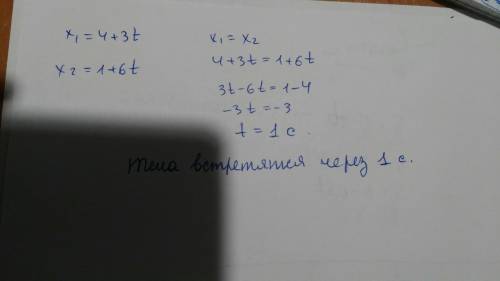 x₁ = 4+3t
x₂ = 1+6t
x₁ = x₂
4+3t = 1+6t
3t-6t = 1-4
-3t = -3
t = 1 с.
Тела встретятся через 1 с.